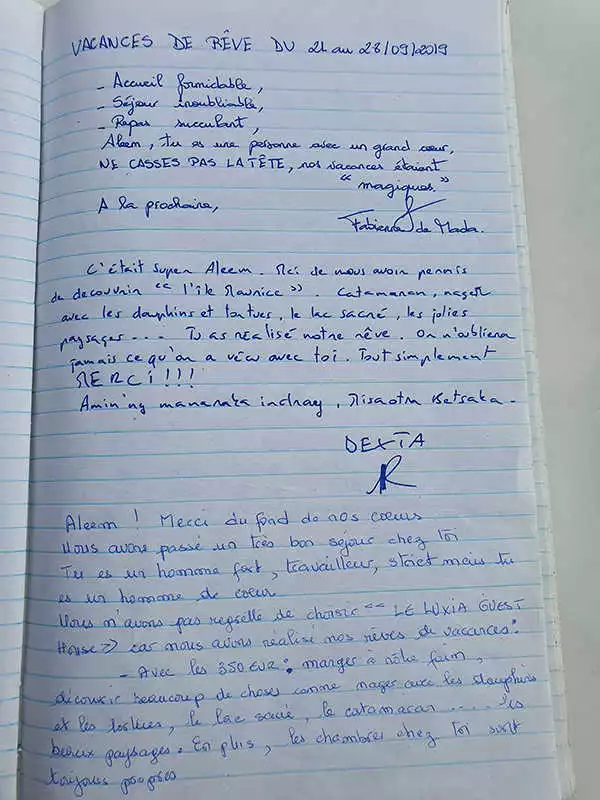 VACANCES DE RÊVE DU 21 au 28/09/2019
- Accueil formidable,
- Séjour inoubliable,
- Repas succulant,
Aleem, tu es une personne avec un grand cœur,
NE CASSES PAS LA TÊTE, nos vacances étaient
"magiques."
A la prochaine,
Fabienne de Mada.
C'était super Aleem. Mci de nous avoir permis
de decouvrir "l'île Maurice". Catamaran, nager
avec les dauphins et tortues, le lac sacré, les jolies
paysages... Tu as réalisé notre rêve. On n'oubliera
jamais ce qu'on a vécu avec toi. Tout simplement
MERCI!!!
Amin'ny manaraka indray, Misaotra Betsaka.
DEXTA
Aleem! Merci du fond de nos coeurs
Nous avons passé un très bon séjour chez toi
Tu es un homme fort, travailleur, strict mais tu
es un homme de coeur
Nous n'avons pas regretté de choisir << LE LUXIA GUEST
House >> car nous avons réalisé nos rêves de vacances:
- Avec les 350 EUR: manger à nôtre faim,
découvrir beaucoup de choses comme nager avec les dauphins
et les tortues, le lac sacré, le catamaran .... les
beaux paysages. En plus, les chambres chez toi sont
toujours propres